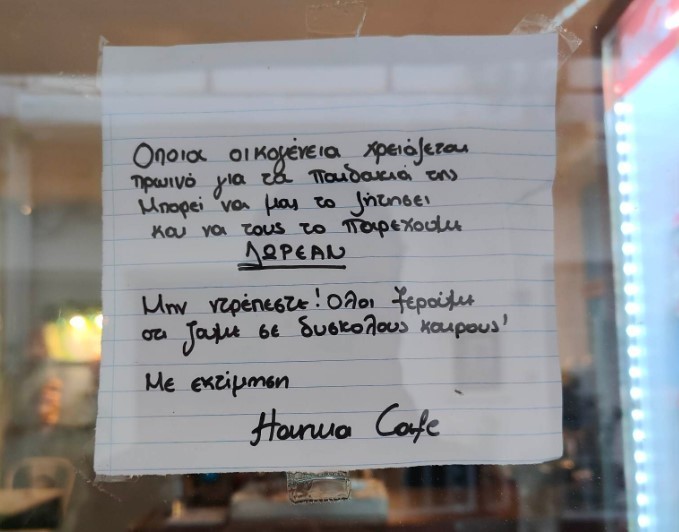 Οποια οικογένεια χρειάζεται
πρωινό για τα παιδακιά της
Μπορεί να μας το ζητησει
και να τους το παρεχουμε
ΔΩΡΕΑΝ
Μην ντρέπεστε! Ολοι ξερουμε
οτι ζαμε σε δυσκολους καιρους!
Με εκτίμηση
Cafe